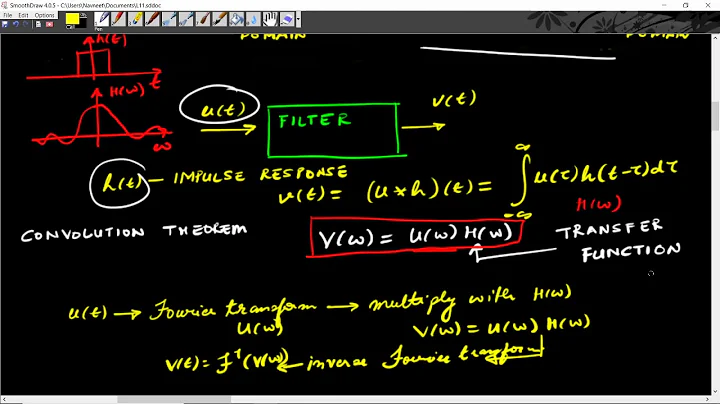 SmoothDraw 4.0.5 - C:\Users\Navneet\Documents\L11.sddoc
File Edit Options Help
Pen
h(t)
DOMAIN
DOMAIN
t
H(ω)
ω
u(t)
FILTER
v(t)
h(t) — IMPULSE RESPONSE
v(t) = (u * h)(t) = ∫ u(τ) h(t-τ) dτ
∞
-∞
H(ω)
CONVOLUTION THEOREM
V(ω) = U(ω) H(ω)
TRANSFER
FUNCTION
u(t) → Fourier transform → multiply with H(ω)
U(ω)
V(ω) = U(ω) H(ω)
v(t) = F⁻¹(V(ω)) ← inverse Fourier transform